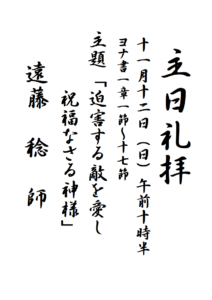 主日礼拝
十一月十二日（日）午前十時半
ヨナ書一章一節〜十七節
主題「迫害する敵を愛し
祝福なさる神様」
遠藤 稔 師